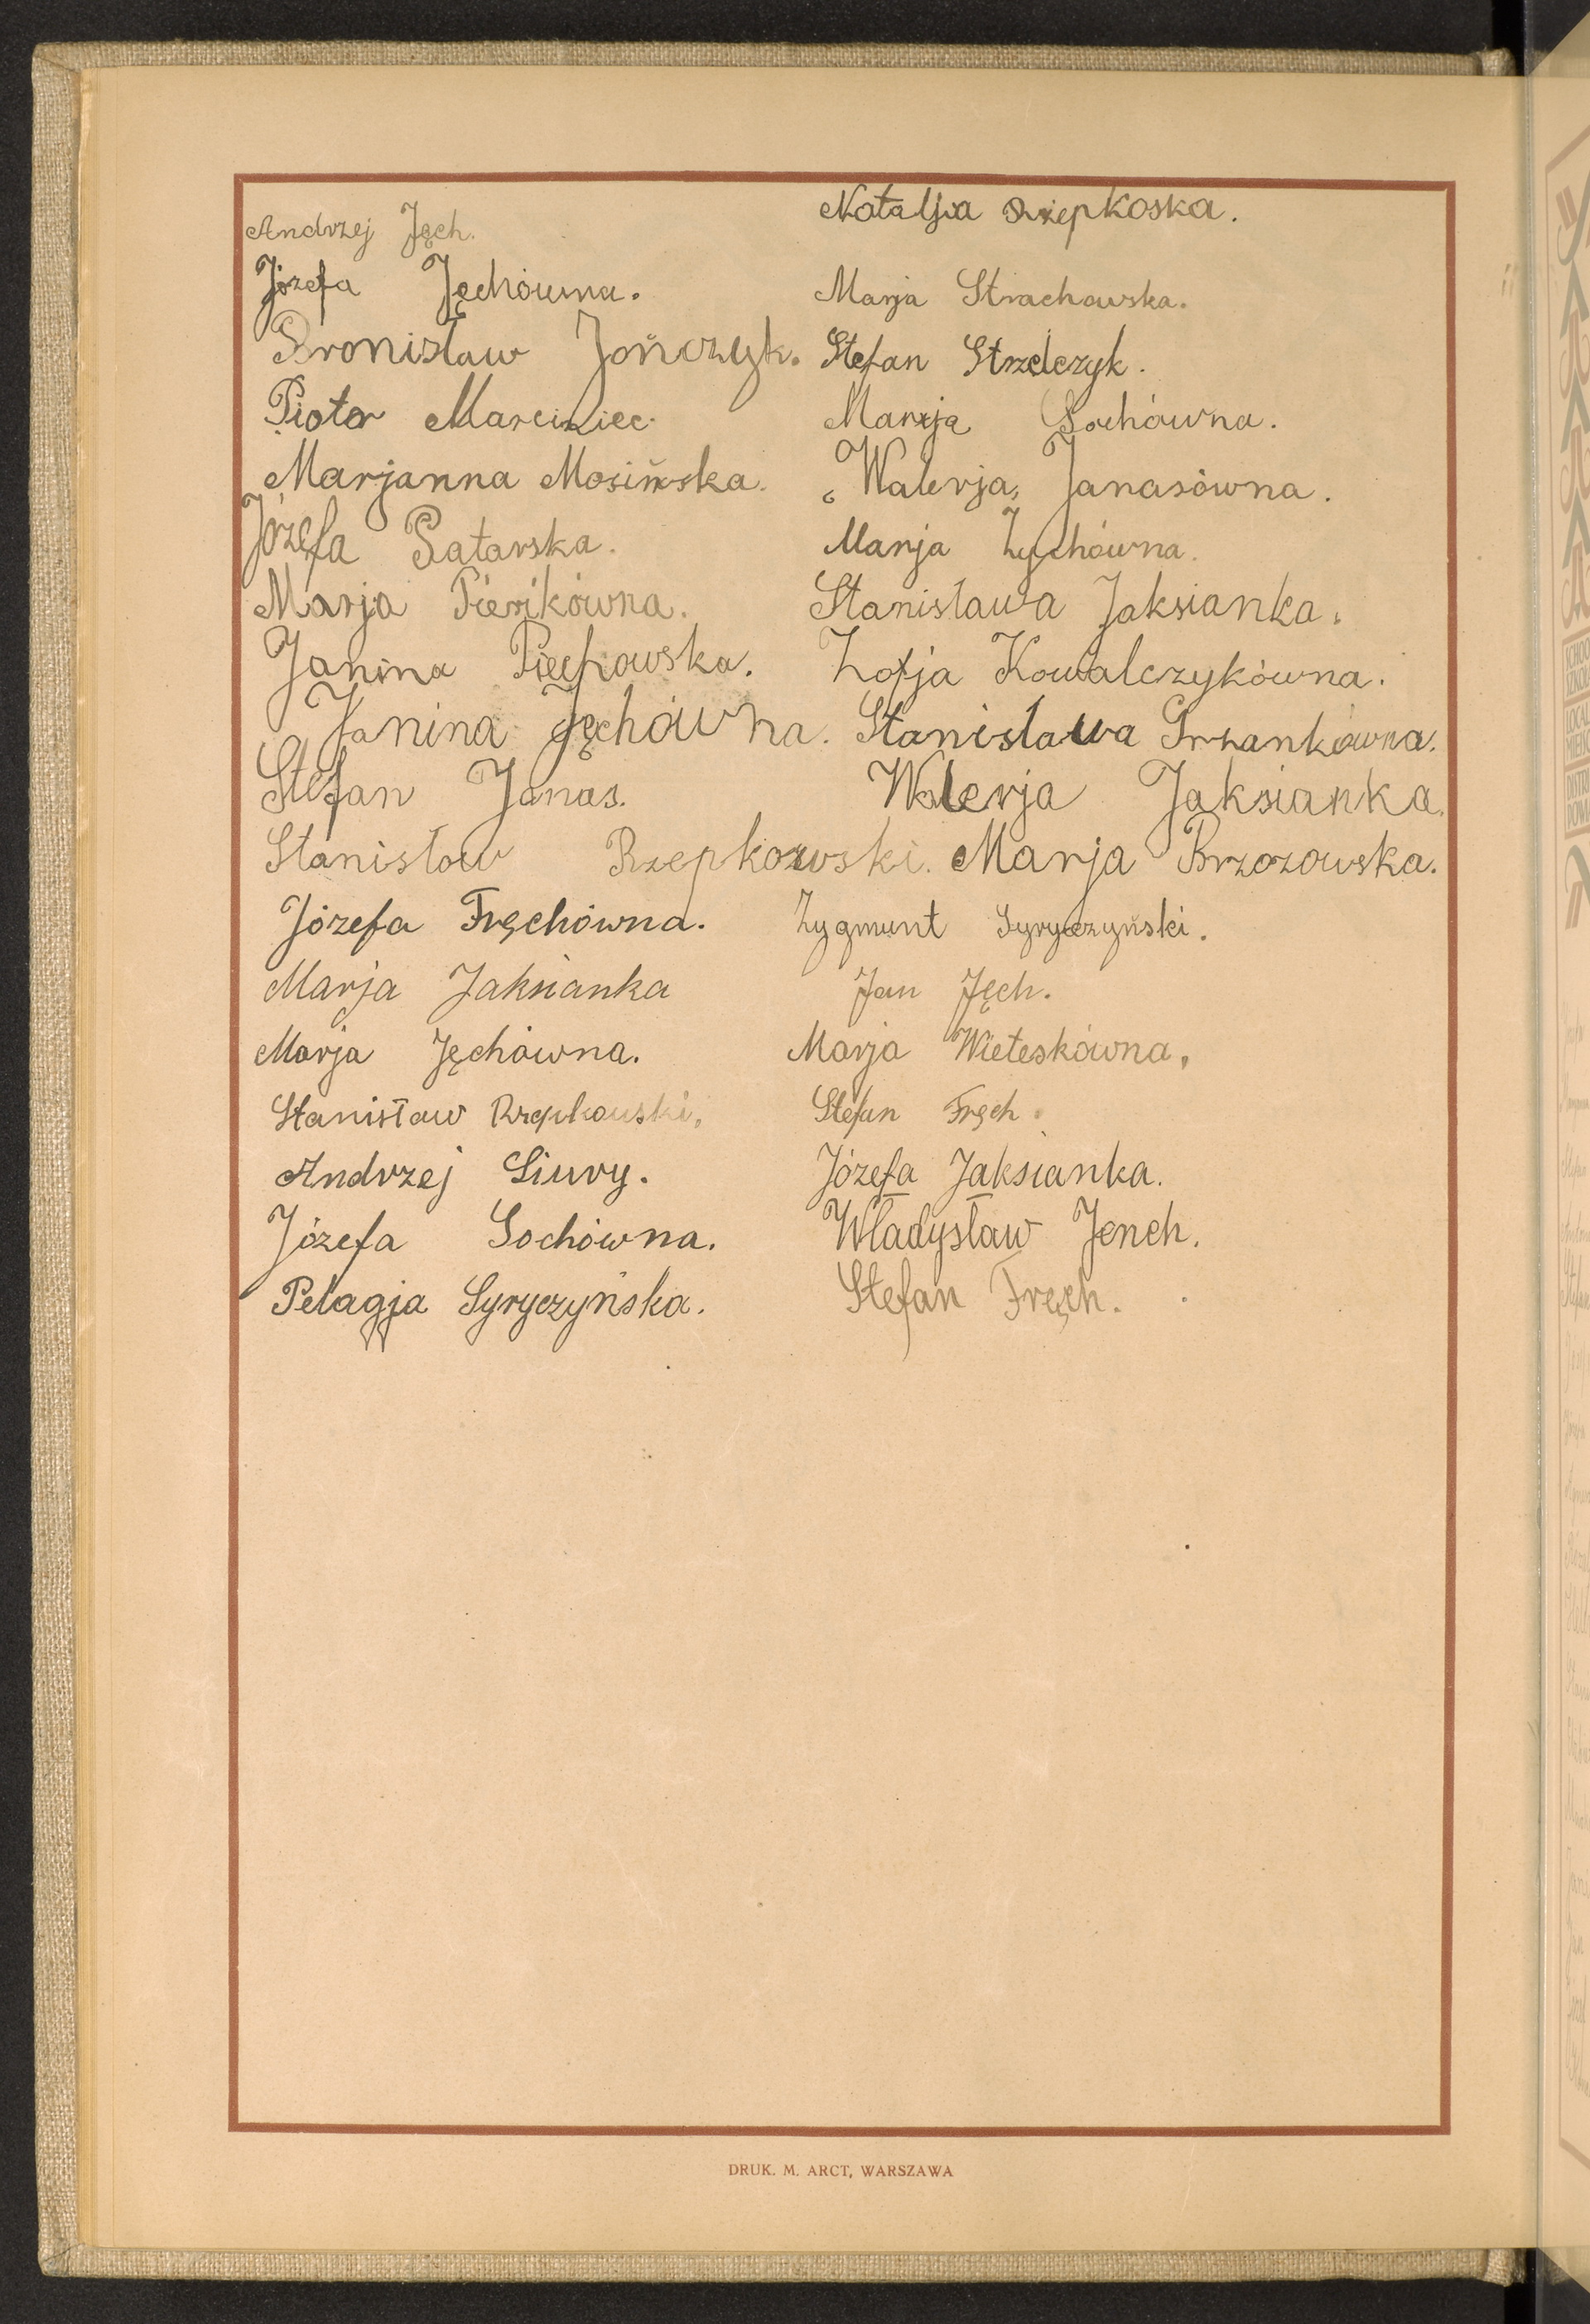 Andrzej Jęch.
Józefa Jęchówna.
Bronisław Jończyk.
Piotr Marciniec.
Marjanna Mosińska.
Józefa Satarska.
Marja Pierikówna.
Janina Piechowska.
Janina Jęchówna.
Stefan Janas.
Stanisłow Rzepkowski.
Józefa Fręchówna.
Marja Jaksianka
Marja Jęchówna.
Stanisław Rzepkowski.
Andrzej Siury.
Józefa Sochówna.
Pelagja Syryczyńska.
Natalja Rzepkoska.
Marja Strachowska.
Stefan Strzelczyk.
Marja Sochówna.
Walerja Janasówna.
Marja Zychówna.
Stanisława Jaksianka.
Zofja Kowalczykówna.
Stanisława Grzankówna.
Walerja Jaksianka.
Marja Brzozowska.
Zygmunt Syryczyński.
Jan Jęch.
Marja Wieteskówna.
Stefan Fręch.
Józefa Jaksianka.
Władysław Jench.
Stefan Fręch.
DRUK. M. ARCT, WARSZAWA